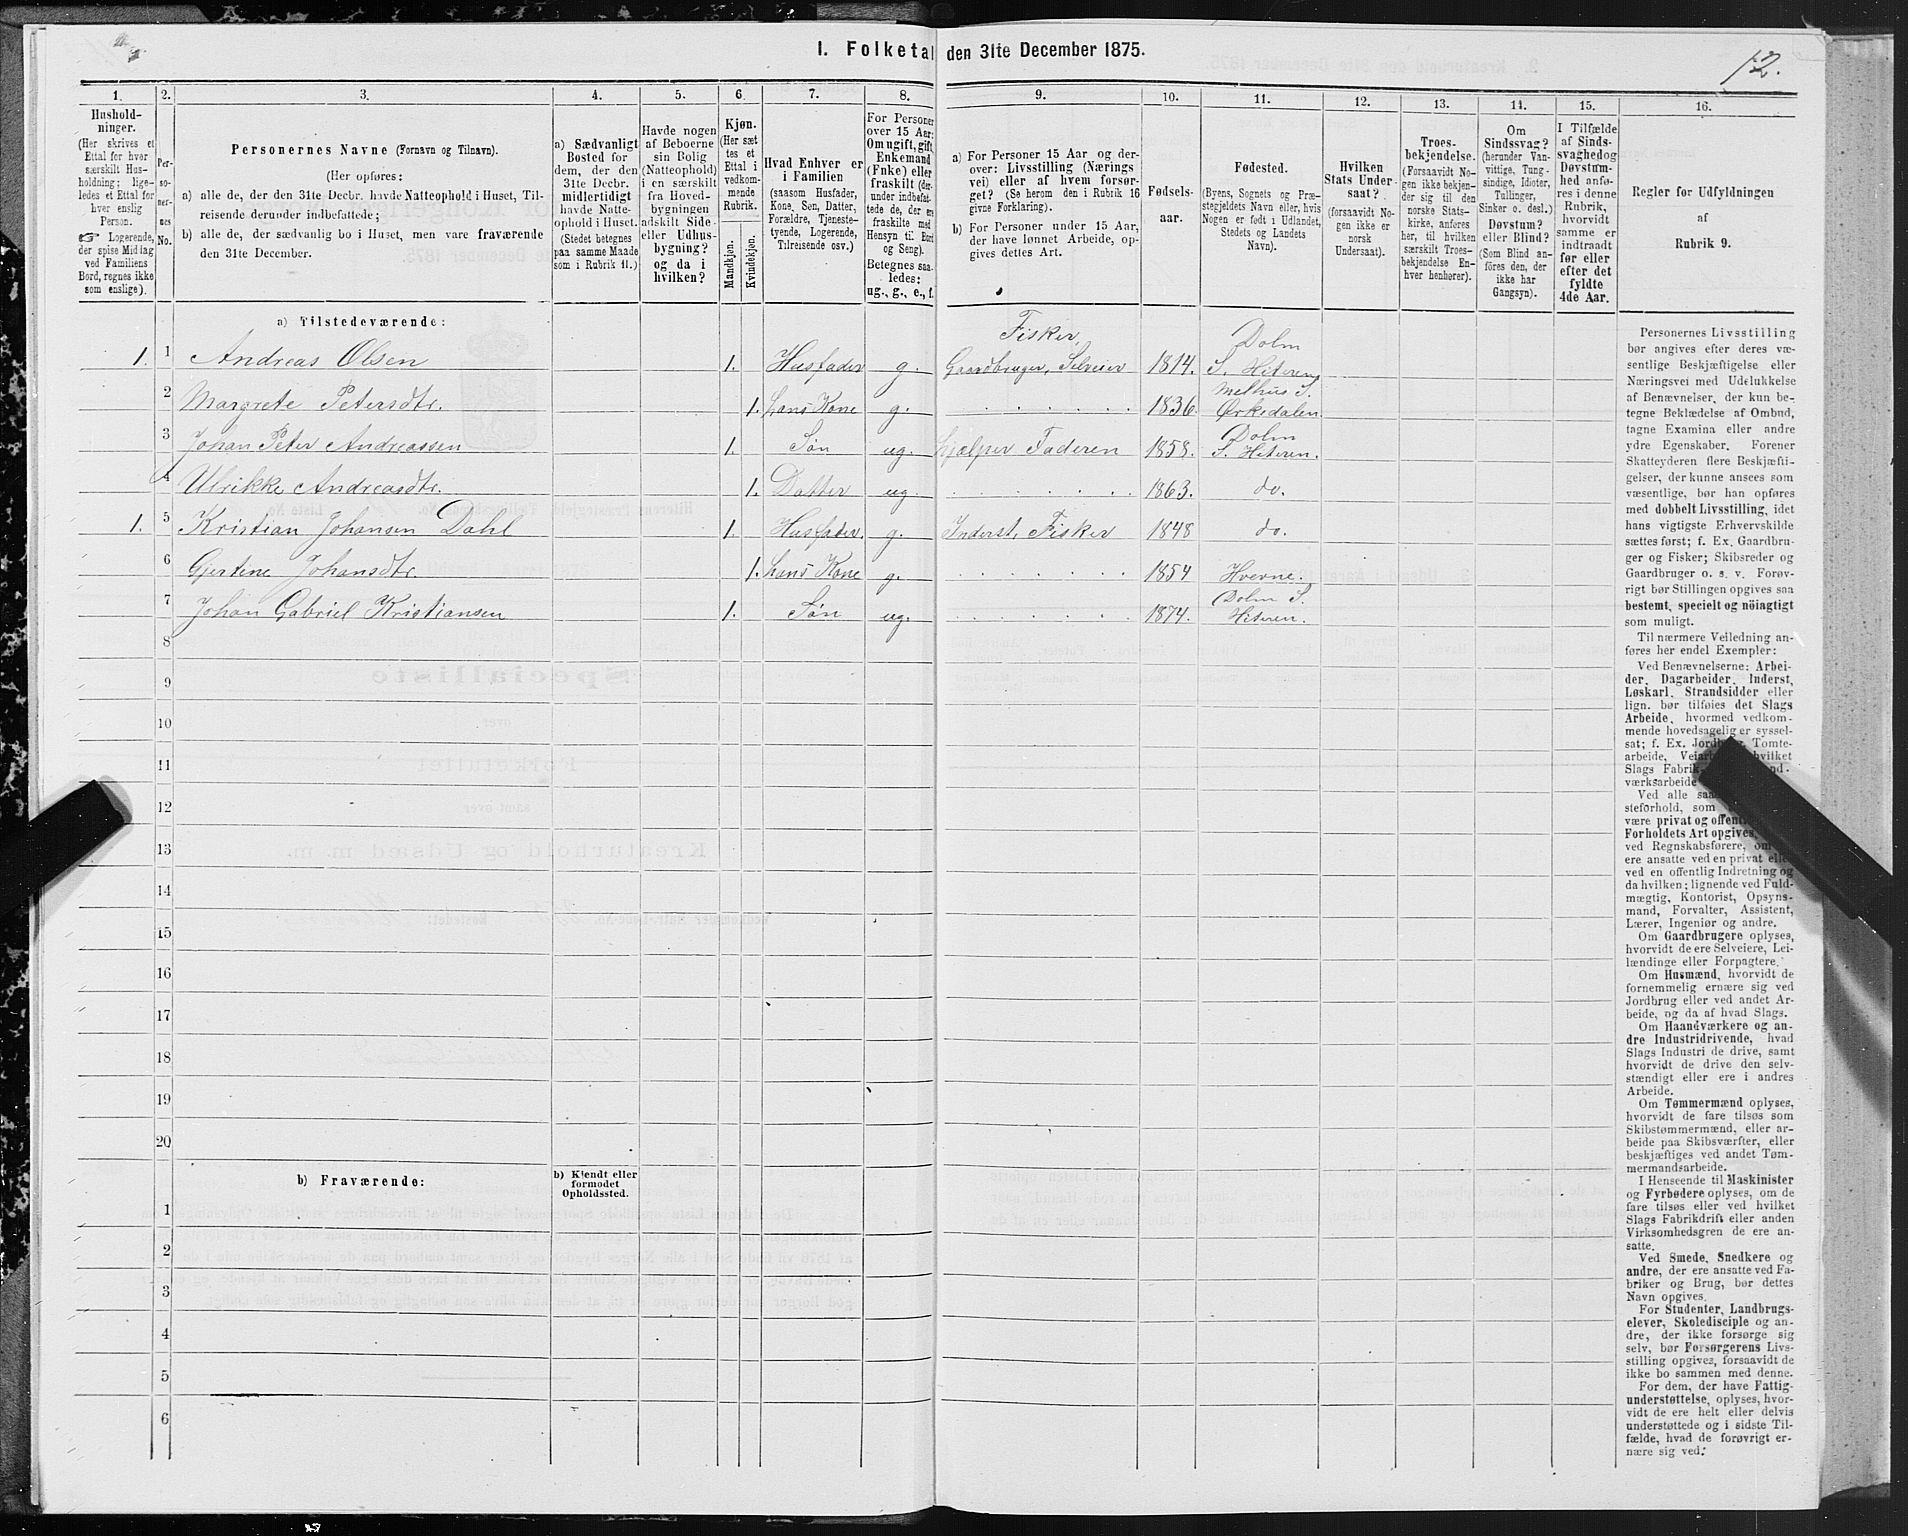 I. Folketal den 31te December 1875.
12.
1.
2.
3.
4.
5.
6.
7.
8.
9.
10.
11.
12.
13.
14.
15.
16.
Hushold-
ninger.
(Her skrives et
Ettal for hver
særskilt Hus-
holdning; lige-
ledes et Ettal for
hver enslig
Person.
☞ Logerende,
der spise Middag
ved Familiens
Bord, regnes ikke
som enslige).
Per-
so-
ner-
nes
No.
Personernes Navne (Fornavn og Tilnavn).
(Her opføres:
a) alle de, der den 31te Decbr. havde Natteophold i Huset, Til-
reisende derunder indbefattede;
b) alle de, der sædvanlig bo i Huset, men vare fraværende
den 31te December.
a) Sædvanligt
Bosted for
dem, der den
31te Decbr.
midlertidigt
havde Natte-
ophold i Huset.
(Stedet betegnes
paa samme Maade
som i Rubrik 11.)
Havde nogen
af Beboerne
sin Bolig
(Natteophold)
i en særskilt
fra Hoved-
bygningen
adskilt Side-
eller Udhus-
bygning?
og da i
hvilken?
Kjøn.
(Her sæt-
tes et
Ettal i
vedkom-
mende
Rubrik.
Mandkjøn.
Kvindekjøn.
Hvad Enhver er
i Familien
(saasom Husfader,
Kone, Søn, Datter,
Forældre, Tjeneste-
tyende, Logerende,
Tilreisende osv.)
For Personer
over 15 Aar:
Om ugift, gift,
Enkemand
(Enke) eller
fraskilt (der-
under indbefat-
tede de, der ere
fraskilte med
Hensyn til Bord
og Seng).
Betegnes saa-
ledes:
ug., g., e., f.
a) For Personer 15 Aar og der-
over: Livsstilling (Nærings-
vei) eller af hvem forsør-
get? (Se herom den i Rubrik 16
givne Forklaring).
b) For Personer under 15 Aar,
der have lønnet Arbeide, op-
gives dettes Art.
Fødsels-
aar.
Fødested.
(Byens, Sognets og Præ-
stegjeldets Navn eller, hvis
Nogen er født i Udlandet,
Stedets og Landets
Navn).
Hvilken
Stats Under-
saat?
(forsaavidt No-
gen ikke er
norsk
Undersaat).
Troes-
bekjendelse.
(Forsaavidt No-
gen ikke bekjen-
der sig til den
norske Stats-
kirke, anføres
her, til hvilken
særskilt Troes-
bekjendelse En-
hver henhører).
Om
Sindssvag?
(herunder Van-
vittige, Tung-
sindige, Idioter,
Tullinger,
Sinker o. desl.)
Døvstum?
eller Blind?
(Som Blind an-
føres den, der
ikke har
Gangsyn).
I Tilfælde
af Sinds-
svaghed og
Døvstum-
hed anfø-
res i denne
Rubrik,
hvorvidt
samme er
indtraadt
før eller
efter det
fyldte
4de Aar.
Regler for Udfyldningen
af
Rubrik 9.
a) Tilstedeværende:
1. 1 Andreas Olsen 1. Husfader g. Fisker, Gaardbruger, Selveier 1814. Dolm S. Hiteren
2 Margrete Petersdtr. 1. hans Kone g. 1836. Melhus S. Ørksdalen
3 Johan Peter Andreassen 1. Søn ug. hjælper Faderen 1858. Dolm S. Hiteren.
4 Ulrikke Andreasdtr. 1. Datter ug. 1863. do.
1. 5 Kristian Johansen Dahl 1. Husfader. g. Inderst, Fisker 1848 do.
6 Gjertine Johansdtr. 1. hans Kone g. 1854 Hevne.
7 Johan Gabriel Kristiansen 1. Søn ug. 1874. Dolm S. Hiteren.
8
9
10
11
12
13
14
15
16
17
18
19
20
b) Fraværende:
b) Kjendt eller
formodet
Opholdssted.
1
2
3
4
5
6
Personernes Livsstilling
bør angives efter deres væ-
sentlige Beskjæftigelse eller
Næringsvei med Udelukkelse
af Benævnelser, der kun be-
tegne Beklædelse af Ombud,
tagne Examina eller andre
ydre Egenskaber. Forener
Skatteyderen flere Beskjæfti-
gelser, der kunne ansees som
væsentlige, bør han opføres
med dobbelt Livsstilling, idet
hans vigtigste Erhvervskilde
sættes først; f. Ex. Gaardbru-
ger og Fisker; Skibsreder og
Gaardbruger o. s. v. Forøv-
rigt bør Stillingen opgives saa
bestemt, specielt og nöiagtigt
som muligt.
Til nærmere Veiledning an-
føres her endel Exempler:
Ved Benævnelserne: Arbei-
der, Dagarbeider, Inderst,
Løskarl, Strandsidder eller
lign. bør tilføies det Slags
Arbeide, hvormed vedkom-
mende hovedsagelig er syssel-
sat; f. Ex. Tomte-
arbeide, hvilket
Slags
værksarbeide
Ved alle
steforhold, som
være privat og
Forholdets Art opgives,
ved Regnskabsførere, om
ere ansatte ved en privat eller
ved en offentlig Indretning og
da hvilken; lignende ved Fuld-
mægtig, Kontorist, Opsyns-
mand, Forvalter, Assistent,
Lærer, Ingeniør og andre.
Om Gaardbrugere oplyses,
hvorvidt de ere Selveiere, Lei-
lændinge eller Forpagtere.
Om Husmænd, hvorvidt de
fornemmelig ernære sig ved
Jordbrug eller ved andet Ar-
beide, og da af hvad Slags.
Om Haandværkere og an-
dre Industridrivende, hvad
Slags Industri de drive, samt
hvorvidt de drive den selv-
stændigt eller ere i andres
Arbeide.
Om Tømmermænd oplyses,
hvorvidt de fare tilsøs som
Skibstømmermænd, eller ar-
beide paa Skibsværfter, eller
beskjæftiges ved andet Tøm-
mermandsarbeide.
I Henseende til Maskinister
og Fyrbødere oplyses, om de
fare tilsøs eller ved hvilket
Slags Fabrikdrift eller anden
Virksomhedsgren de ere an-
satte.
Ved Smede, Snedkere og
andre, der ere ansatte ved Fa-
briker og Brug, bør dettes
Navn opgives.
For Studenter, Landbrugs-
elever, Skoledisciple og an-
dre, der ikke forsørge sig
selv, bør Forsørgerens Livs-
stilling opgives, forsaavidt de
ikke bo sammen med denne.
For dem, der have Fattig-
understøttelse, oplyses, hvor-
vidt de ere helt eller delvis
understøttede og i sidste Til-
fælde, hvad de forøvrigt er-
nære sig ved.